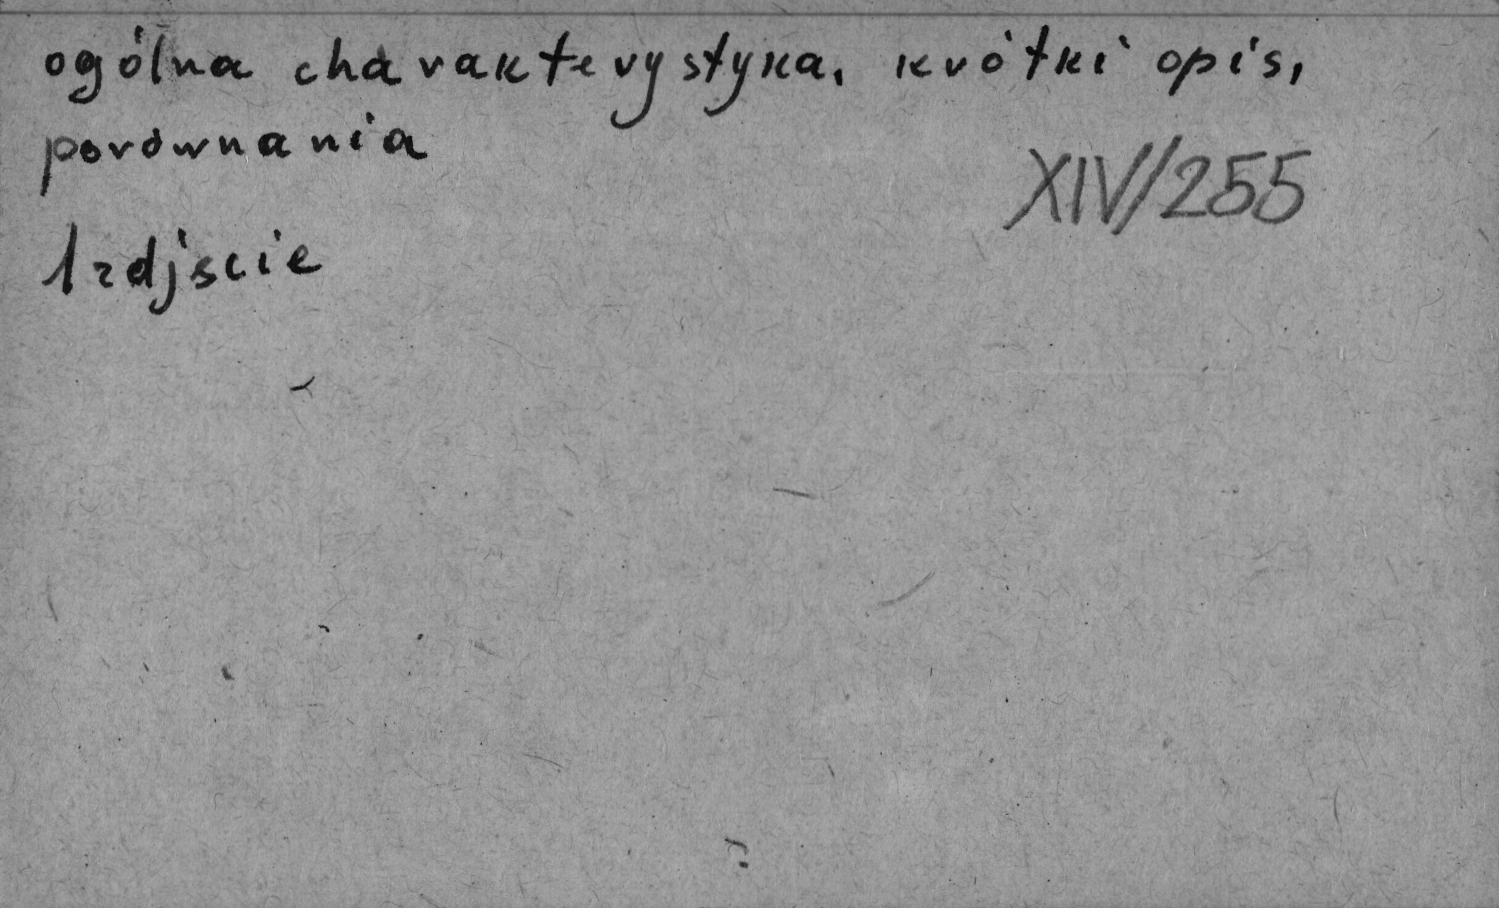 ogólna charakterystyka, krótki opis,
porównania
XIV/255
1 zdjście